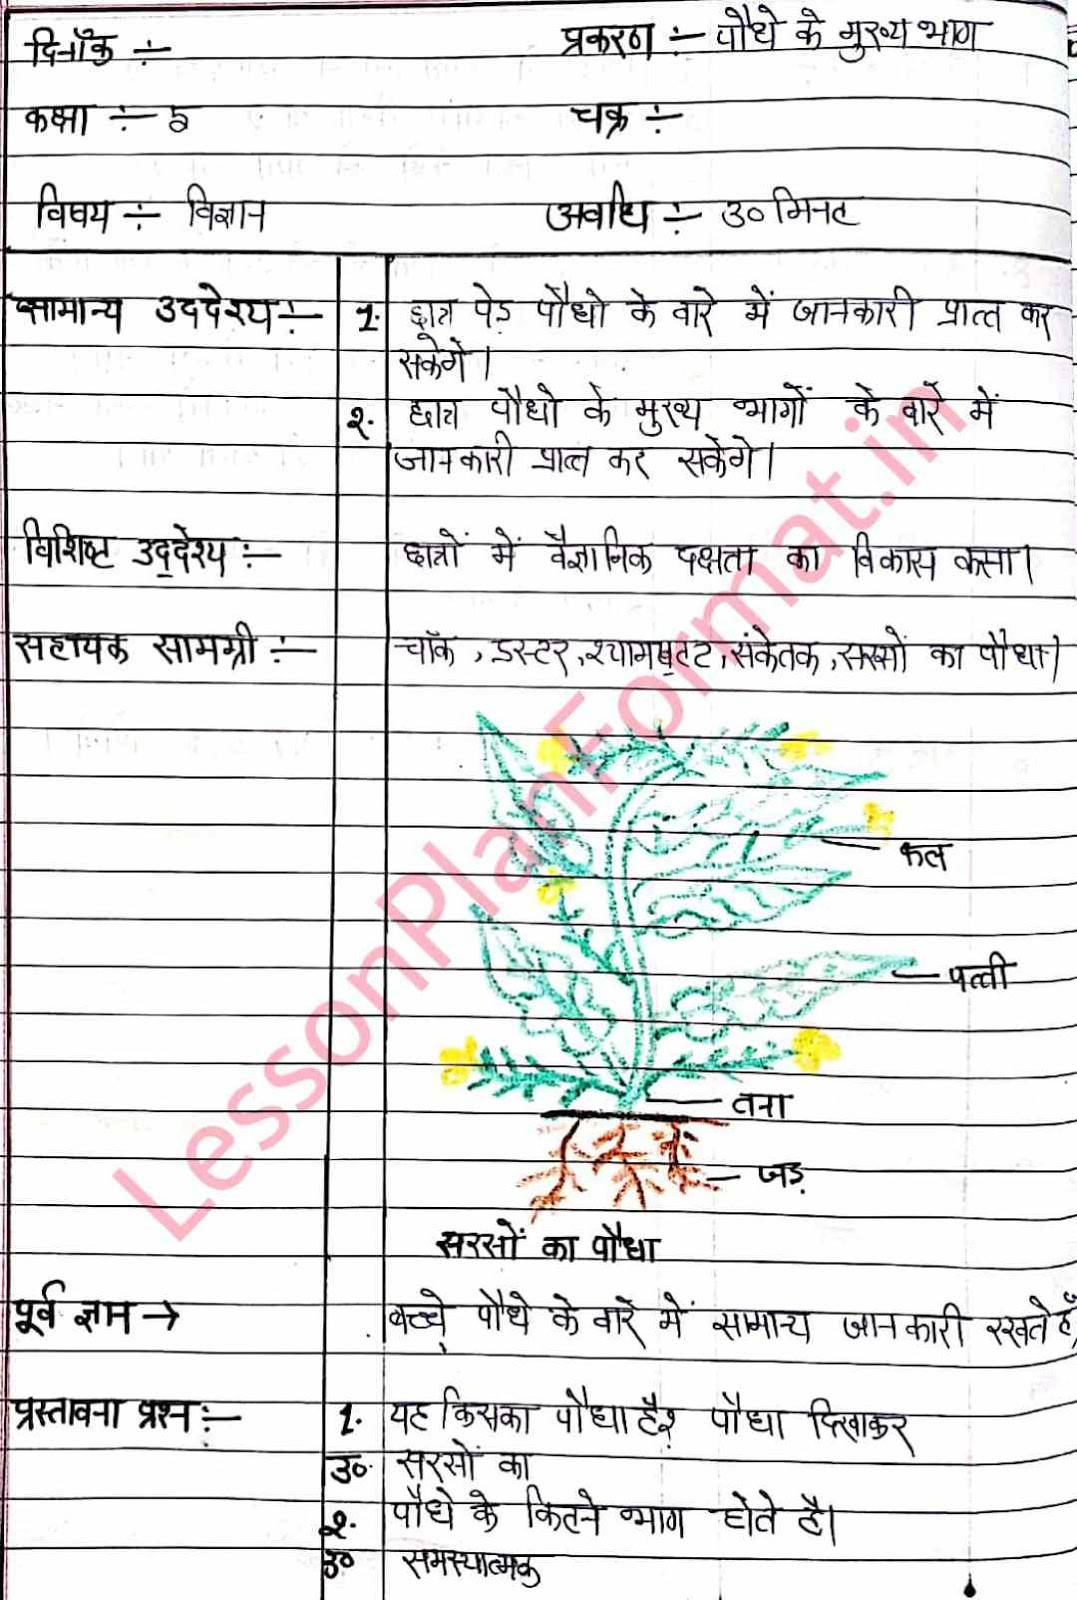 दिनाँक ÷ प्रकरण ÷ पौधे के मुख्य भाग
कक्षा ÷ 5 चक्र ÷
विषय ÷ विज्ञान अवधि ÷ 30 मिनट
सामान्य उददेश्य :- 1. छात्र पेड़ पौधो के बारे में जानकारी प्राप्त कर
सकेगें।
2. छात्र पौधो के मुख्य भागों के बारे में
जानकारी प्राप्त कर सकेंगे।
विशिष्ट उद्देश्य :- छात्रों में वैज्ञानिक दक्षता का विकास करना।
सहायक सामग्री :- चॉक, डस्टर, श्यामपट्ट, संकेतक, सरसों का पौधा।
फल
पत्ती
तना
जड़
सरसों का पौधा
पूर्व ज्ञान → बच्चे पौधे के बारे में सामान्य जानकारी रखते हैं
प्रस्तावना प्रश्न :- 1. यह किसका पौधा है? पौधा दिखाकर
उ० सरसों का
2. पौधे के कितने भाग होते है।
उ० समस्यात्मक
LessonPlanFormat.in